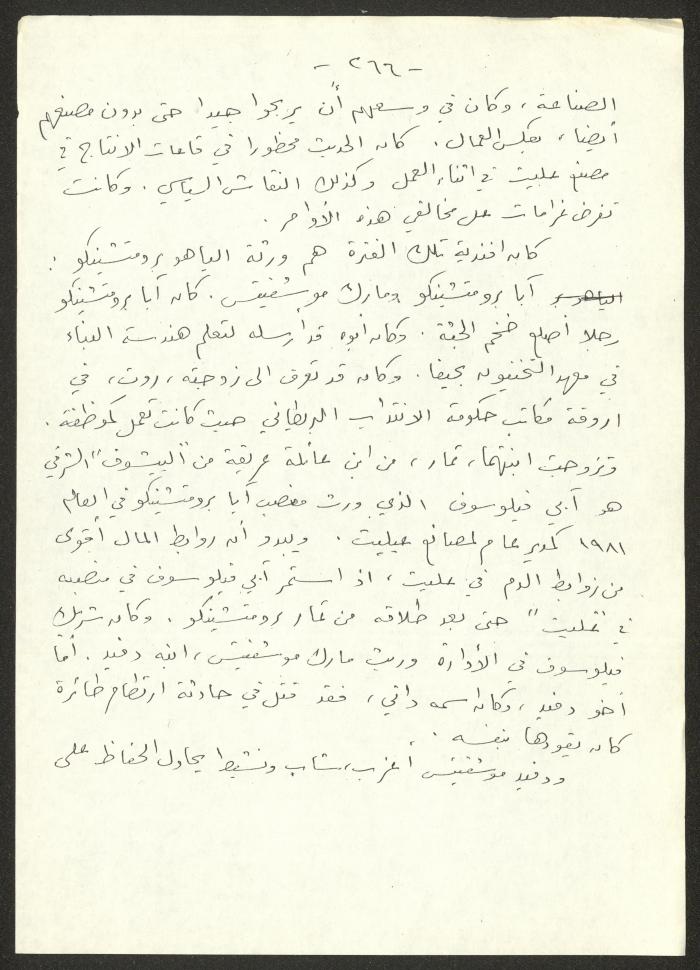 - ٢٦٦ -
الصناعة ، وكان في وسعهم أن يربحوا جيدا حتى بدون مصنعهم
أيضا ، بعكس العمال . كان الحديث محظورا في قاعات الانتاج في
مصنع عليت في اثناء العمل وكذلك النقاش السياسي . وكانت
تفرض غرامات على مخالفي هذه الأوامر .
كان افندية تلك الفترة هم ورثة الياهو برومتشينكو :
الياهو آبا برومتشينكو ومارك موشفيتس . كان آبا برومتشينكو
رجلا أصلع ضخم الجثة . وكان أبوه قد أرسله لتعلم هندسة البناء
في معهد التخنيون بحيفا . وكان قد تعرف الى زوجته ، روت ، في
اروقة مكاتب حكومة الانتداب البريطاني حيث كانت تعمل كموظفة .
وتزوجت ابنتهما ، تمار ، من ابن عائلة عريقة من "اليشوف" الشرقي
هو آبي فيلوسوف الذي ورث منصب آبا برومتشينكو في العام
١٩٨١ كمدير عام لمصانع عيليت . ويبدو أن روابط المال أقوى
من روابط الدم في عليت ، اذ استمر آبي فيلوسوف في منصبه
في "عليت" حتى بعد طلاقه من تمار برومتشينكو . وكان شريك
فيلوسوف في الأدارة وريث مارك موشفيتس ، ابنه دفيد . أما
أخو دفيد ، وكان اسمه داني ، فقد قتل في حادثة ارتطام طائرة
كان يقودها بنفسه .
ودفيد موشفيتس أعزب ، شاب ونشيط يحاول الحفاظ على